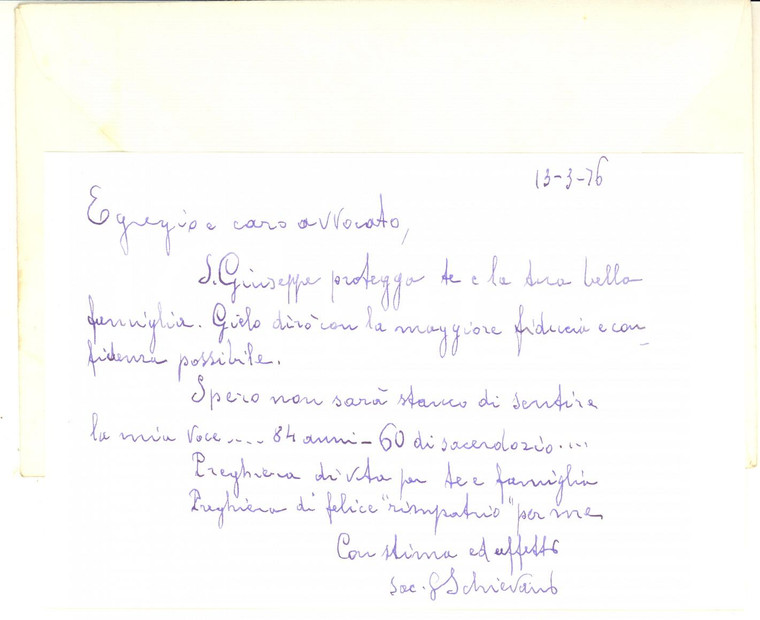 13-3-76
Egregio e caro avvocato,
S. Giuseppe protegga te e la tua bella
famiglia. Glielo dirò con la maggiore fiducia e con_
fidenza possibile.
Spero non sarà stanco di sentire
la mia voce .... 84 anni - 60 di sacerdozio....
Preghiera di vita per te e famiglia
Preghiera di felice "rimpatrio" per me
Con stima ed affetto
sac. G Schievano